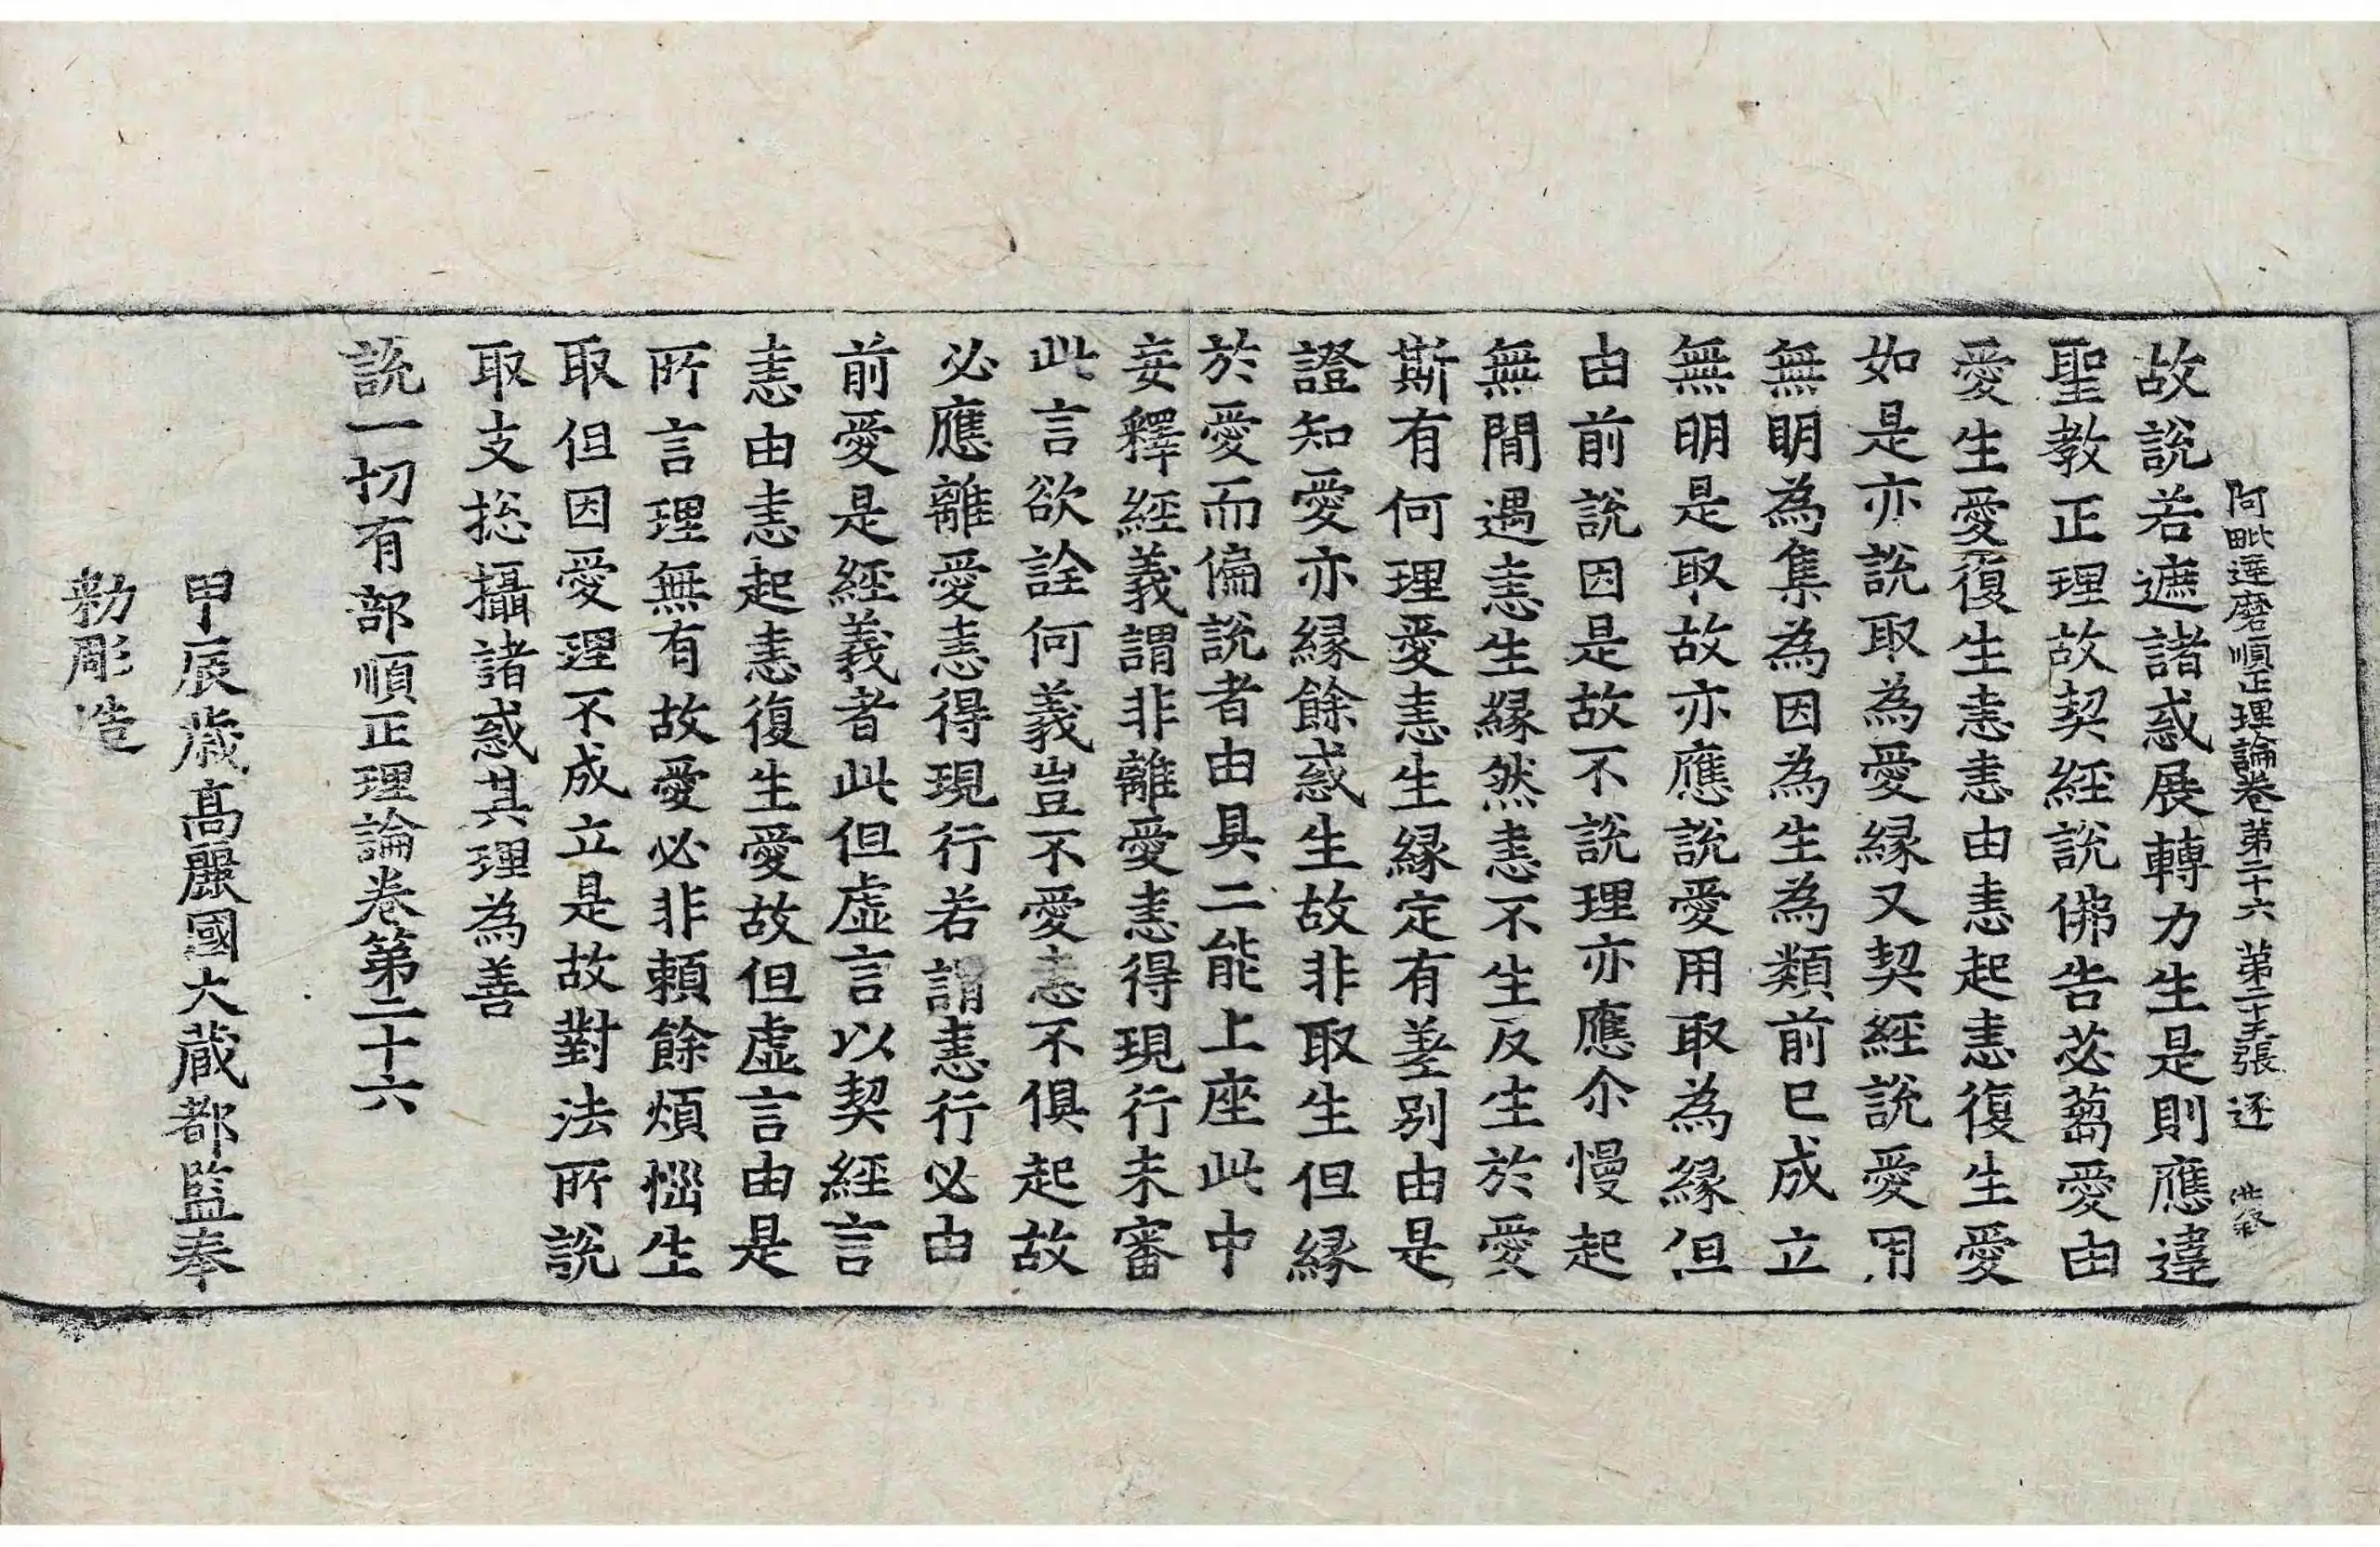 阿毗達磨順正理論卷第二十六 第二十五張 逐
故說若遮諸惑展轉力生是則應違
聖教正理故契經說佛告苾蒭愛由
愛生愛復生恚恚由恚起恚復生愛
如是亦說取為愛緣又契經說愛用
無明為集為因為生為類前已成立
無明是取故亦應說愛用取為緣但
由前說因是故不說理亦應尒慢起
無間遇恚生緣然恚不生反生於愛
斯有何理愛恚生緣定有差別由是
證知愛亦緣餘惑生故非取生但緣
於愛而偏說者由具二能上座此中
妄釋經義謂非離愛恚得現行未審
此言欲詮何義豈不愛恚不俱起故
必應離愛恚得現行若謂恚行必由
前愛是經義者此但虛言以契經言
恚由恚起恚復生愛故但虛言由是
所言理無有故愛必非賴餘煩惱生
取但因愛理不成立是故對法所說
取支捴攝諸惑其理為善
說一切有部順正理論卷第二十六
甲辰歲高麗國大藏都監奉
勅彫造